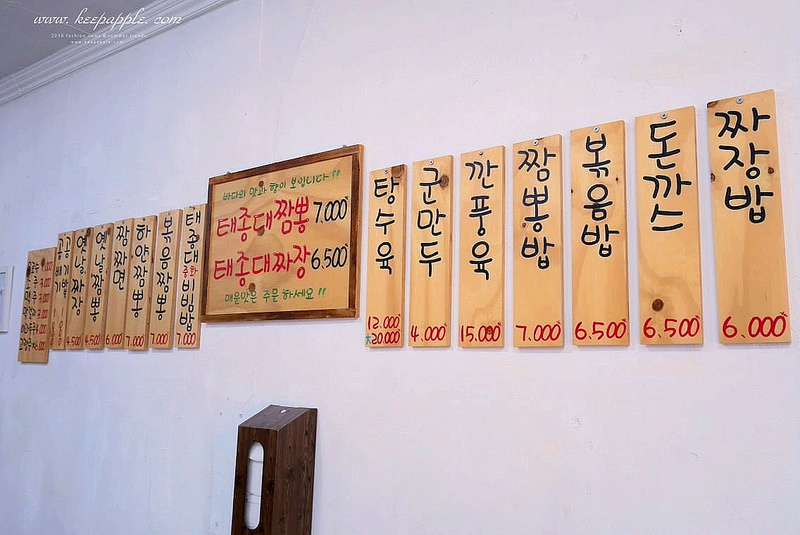 www. keepapple. com
태종대
중화
비빔밥
7.000
볶음짬뽕
7.000
하얀짬뽕
7.000
짬짜면
6.000
옛날짬뽕
4.500
옛날짜장
4.500
공기밥
곱빼기
바다의 맛과 향이 보입니다!!
태종대짬뽕 7.000
태종대짜장 6.500
매운맛은 주문 하세요!!
탕수육
12.000
大20.000
군만두
4.000
깐풍육
15.000
짬뽕밥
7.000
볶음밥
6.500
돈까스
6.500
짜장밥
6.000